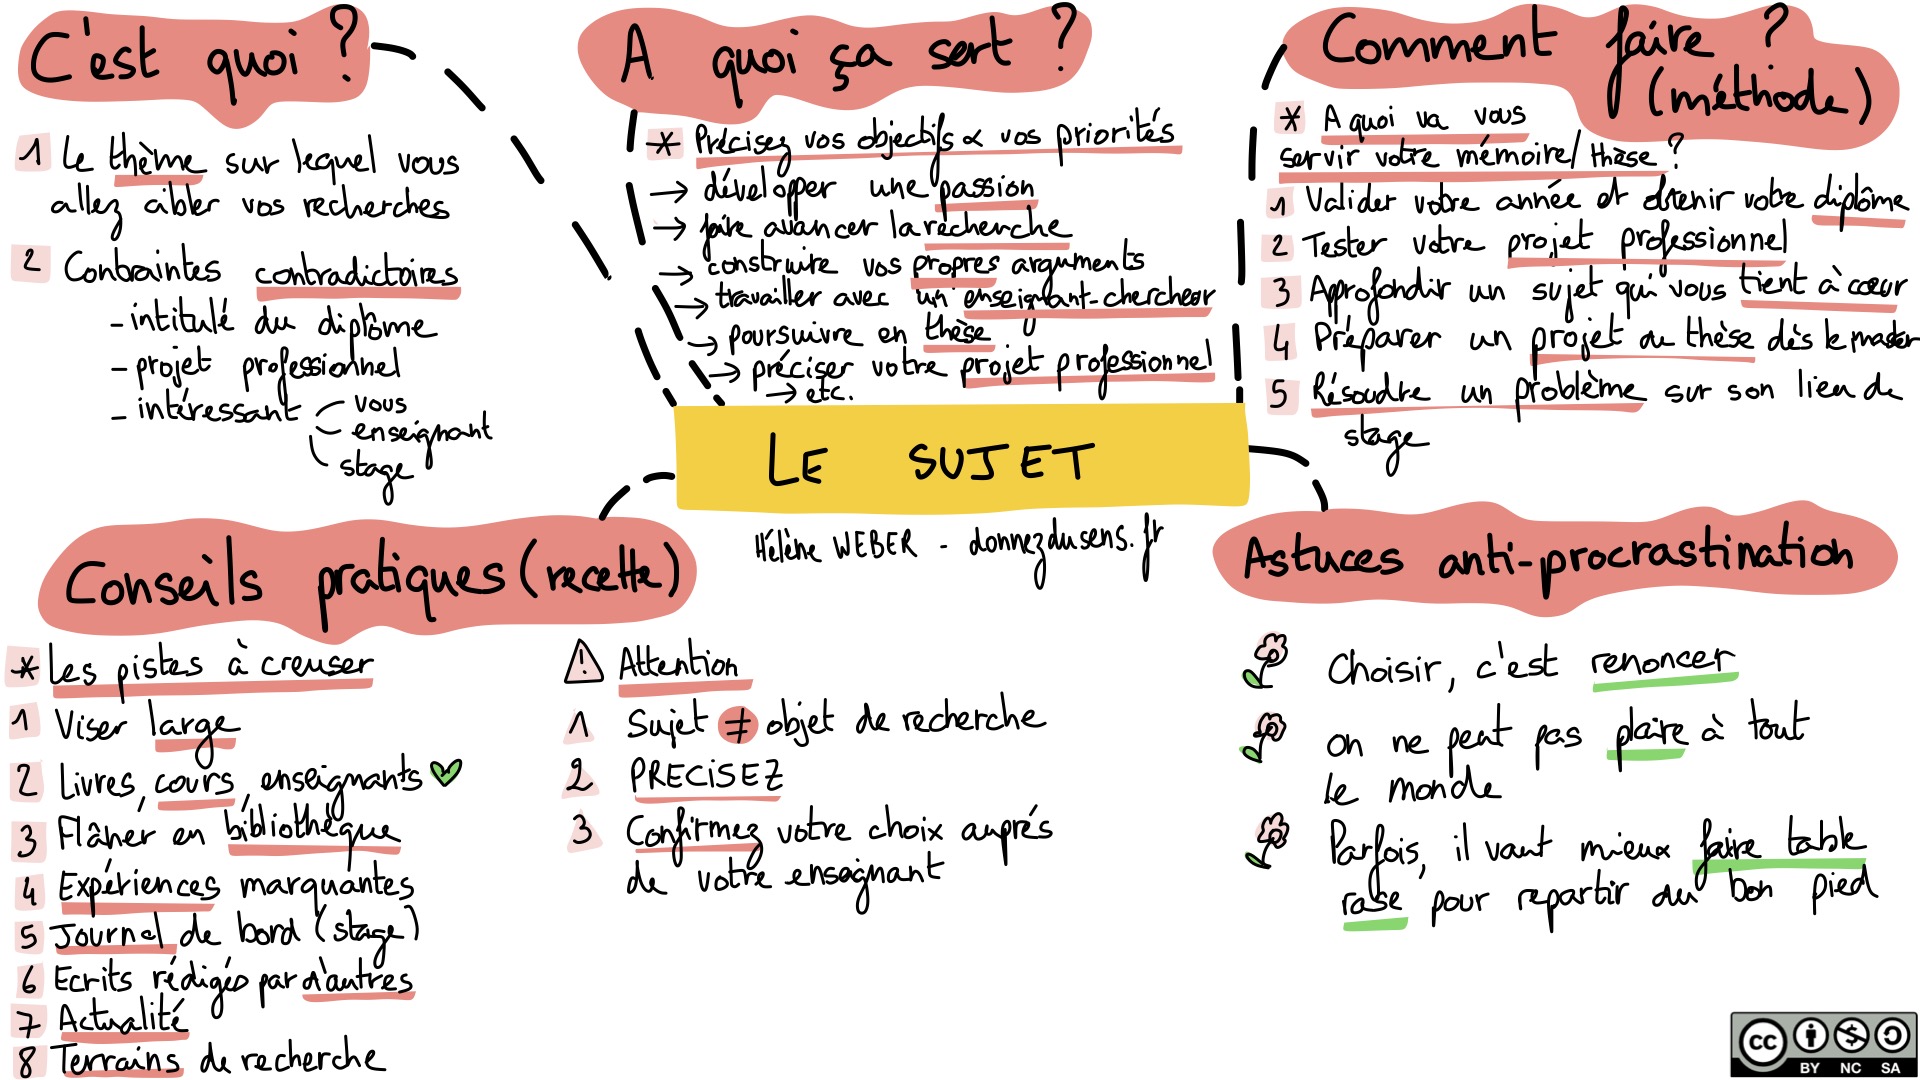 C'est quoi ?
1 Le thème sur lequel vous
allez cibler vos recherches
2 Contraintes contradictoires
- intitulé du diplôme
- projet professionnel
- intéressant
vous
enseignant
stage
A quoi ça sert ?
* Précisez vos objectifs & vos priorités
→ développer une passion
→ faire avancer la recherche
→ construire vos propres arguments
→ travailler avec un enseignant-chercheur
→ poursuivre en thèse
→ préciser votre projet professionnel
→ etc.
Comment faire ?
(méthode)
* A quoi va vous
servir votre mémoire/thèse ?
1 Valider votre année et obtenir votre diplôme
2 Tester votre projet professionnel
3 Approfondir un sujet qui vous tient à cœur
4 Préparer un projet de thèse dès le master
5 Résoudre un problème sur son lieu de
stage
LE SUJET
Hélène WEBER - donnezdusens.fr
Conseils pratiques (recette)
* Les pistes à creuser
1 Viser large
2 Livres, cours, enseignants
3 Flâner en bibliothèque
4 Expériences marquantes
5 Journal de bord (stage)
6 Ecrits rédigés par d'autres
7 Actualité
8 Terrains de recherche
! Attention
1 Sujet ≠ objet de recherche
2 PRECISEZ
3 Confirmez votre choix auprés
de votre enseignant
Astuces anti-procrastination
Choisir, c'est renoncer
on ne peut pas plaire à tout
le monde
Parfois, il vaut mieux faire table
rase pour repartir du bon pied
CC BY NC SA